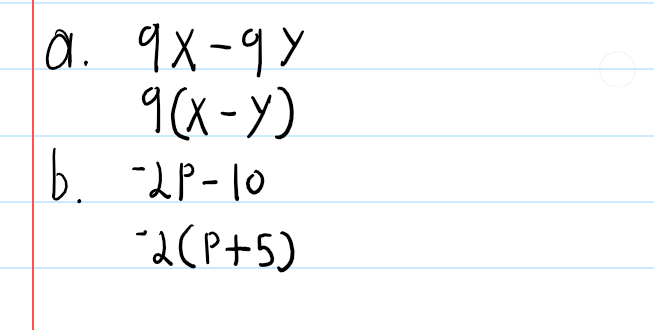 a. 9x-9y
9(x-y)
b. -2p-10
-2(p+5)